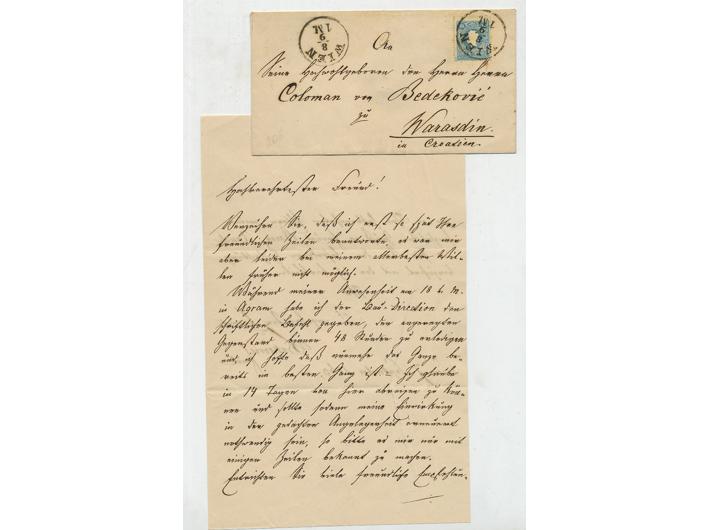 WIEN
8/9
1.M.
WIEN
8/9
1.M.
An
Seine Hochwohlgeboren den Herrn Herrn
Coloman von Bedeković
zu
Warasdin.
in Croatien.
Hochverehrtester Freund!
Verzeihen Sie, daß ich erst so spät Ihre
freundlichen Zeilen beantworte, es war mir
aber leider bei meinem allerbesten Wil-
len früher nicht möglich.
Während meiner Anwesenheit am 18 t. M.
in Agram habe ich der Bau-Direction den
schriftlichen Befehl gegeben, den angeregten
Gegenstand binnen 48 Stunden zu erledigen
und, ich hoffe daß nunmehr das Ganze be-
reits im besten Gang ist. – Ich glaube
in 14 Tagen von hier abreisen zu kön-
nen und sollte sodann meine Einwirkung
in der gedachten Angelegenheit erneuert
nothwendig sein, so bitte es mir nur mit
einigen Zeilen bekannt zu machen.
Entrichten Sie viele freundliche Empfehlun-